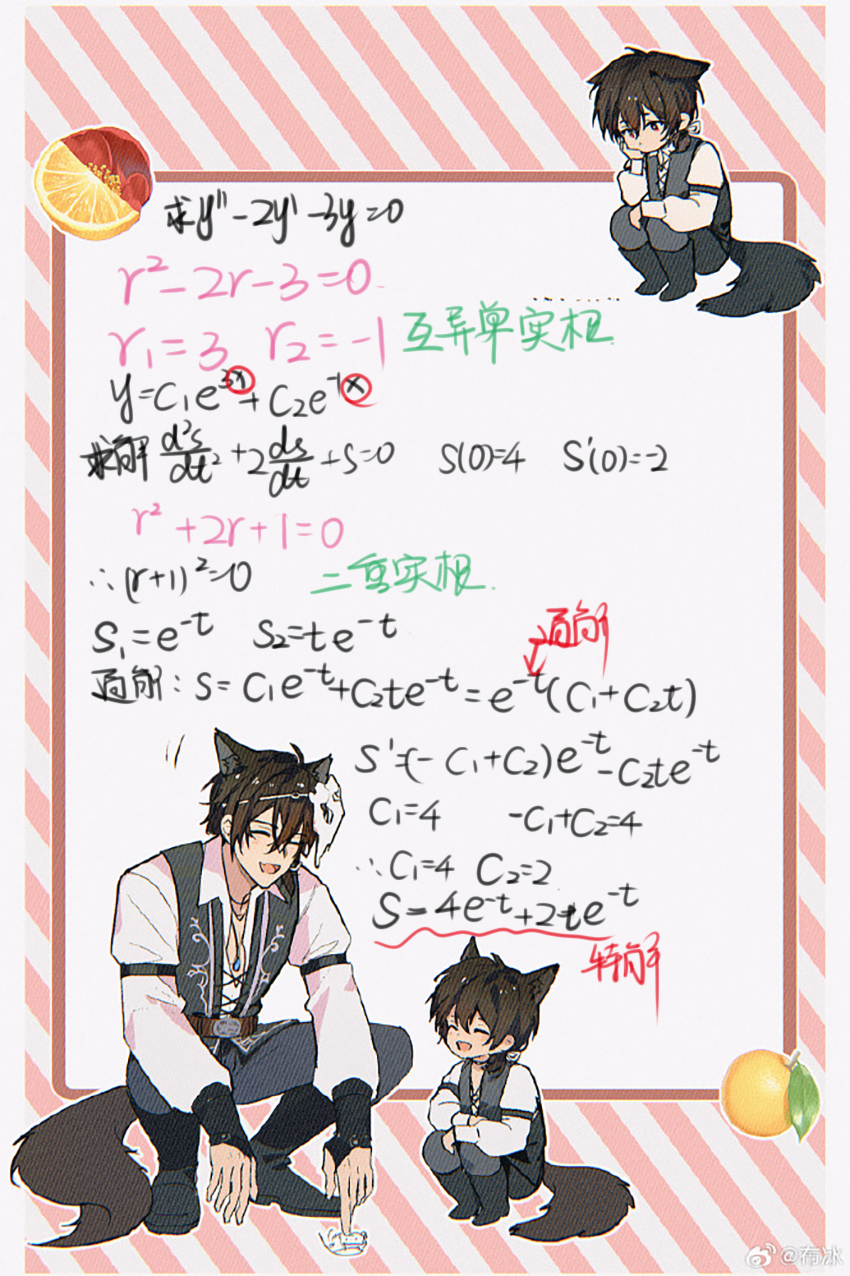 求y''-2y'-3y=0
r²-2r-3=0.
r₁=3 r₂=-1 互异单实根.
y=C₁e³ˣ+C₂e⁻¹ˣ
求解 d²s/dt²+2ds/dt+s=0 S(0)=4 S'(0)=-2
r²+2r+1=0
∴(r+1)²=0 二重实根.
S₁=e⁻ᵗ S₂=te⁻ᵗ
通解
通解:S=C₁e⁻ᵗ+C₂te⁻ᵗ=e⁻ᵗ(C₁+C₂t)
S'=(-C₁+C₂)e⁻ᵗ-C₂te⁻ᵗ
C₁=4 -C₁+C₂=4
∴C₁=4 C₂=2
S=4e⁻ᵗ+2te⁻ᵗ
特解
@布冰